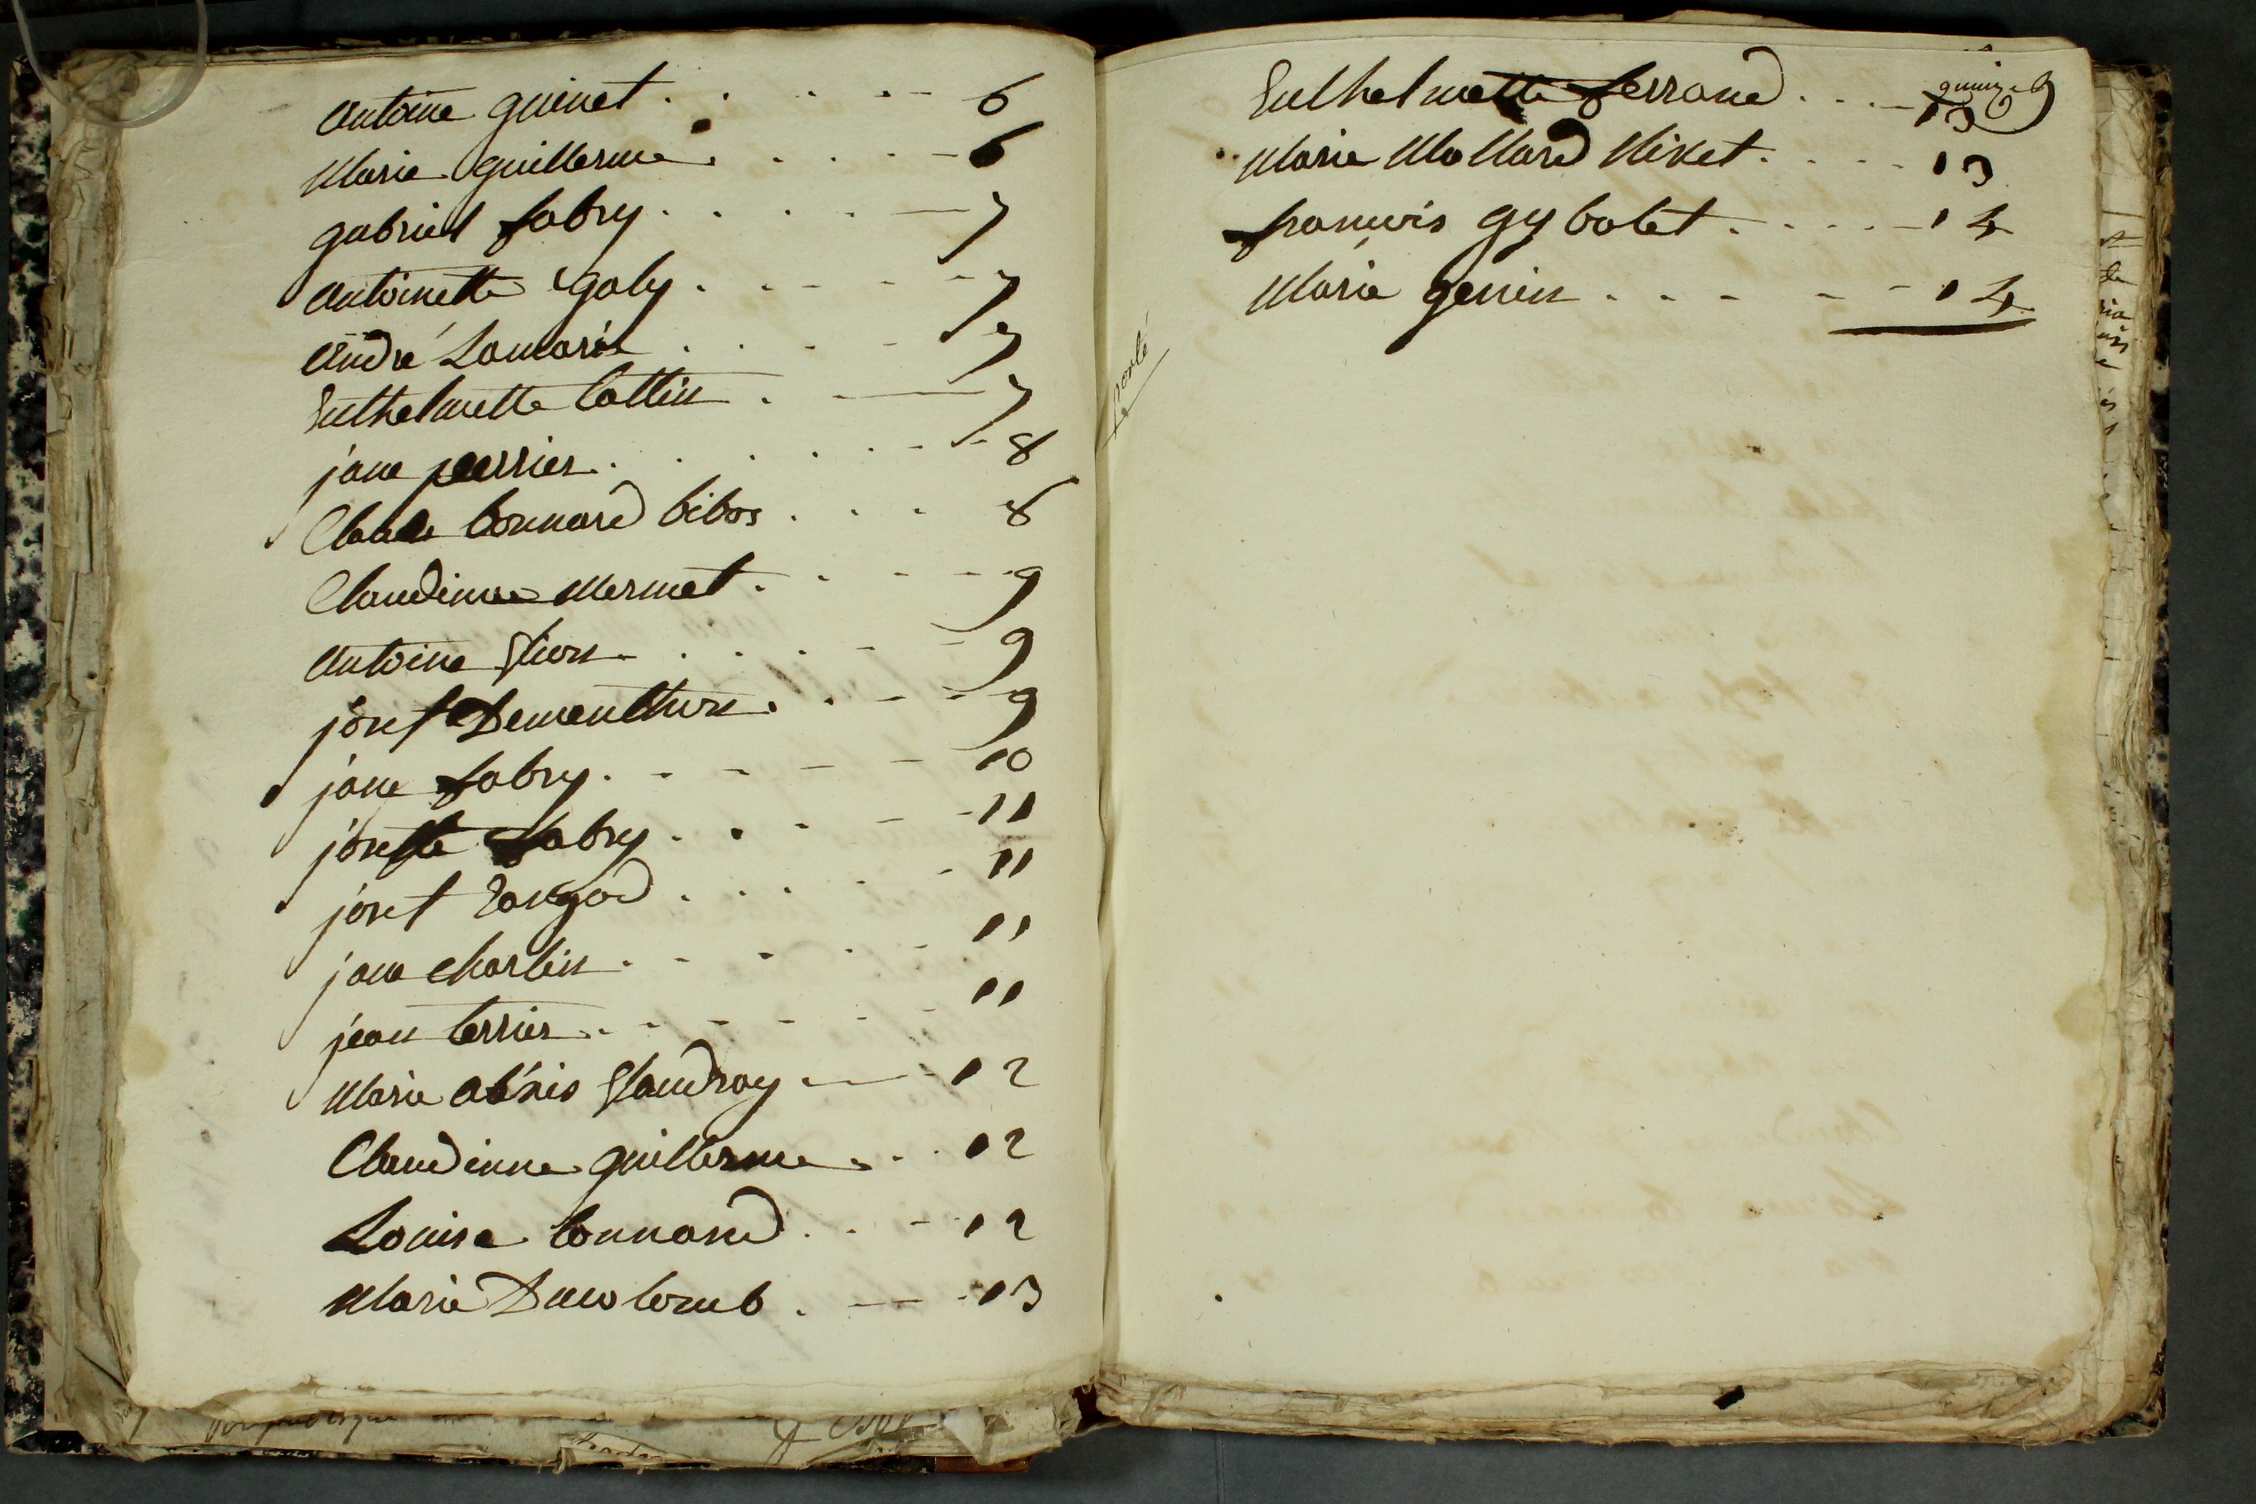 antoine guinet . . . . . 6
Marie guillerme . . . . . 6
gabriel fabry . . . . . 7
antoinette galy . . . . . 7
andré Lamarin . . . . 7
Enthelmette Cottin . . 7
jane perrier . . . . . . 8
Claude Connard bibos . . . 8
Claudinne Mermet . . . . . 9
antoine . . . . . 9
josef Dementhon . . . . . 9
jane fabry . . . . . . 10
josette fabry . . . . . 11
josef . . . . . 11
jane charlin . . . . . 11
jean terrier . . . . . . 11
Marie 12
Claudinne guillerme . . . 12
Louise Connard . . . 12
Marie Ducolomb . . . 13
Enthelmette ferrand . . . . 13
quinze
Marie Mollard Miret . . . . 13
francois gybolet . . . . . 14
Marie genin . . . . . 14
porté